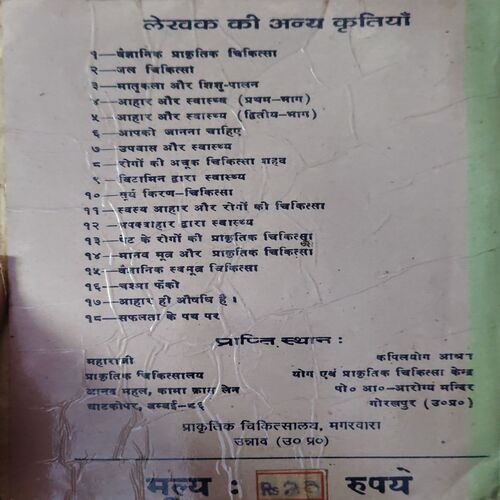 लेखक की अन्य कृतियाँ
१—वैज्ञानिक प्राकृतिक चिकित्सा
२—जल चिकित्सा
३—मातृकला और शिशु-पालन
४—आहार और स्वास्थ्य (प्रथम-भाग)
५—आहार और स्वास्थ्य (द्वितीय-भाग)
६—आपको जानना चाहिए
७—उपवास और स्वास्थ्य
८—रोगों की अचूक चिकित्सा शहद
९—विटामिन द्वारा स्वास्थ्य
१०—सूर्य किरण—चिकित्सा
११—स्वस्थ आहार और रोगों की चिकित्सा
१२—अपक्वाहार द्वारा स्वास्थ्य
१३—पेट के रोगों की प्राकृतिक चिकित्सा
१४—मानव मूत्र और प्राकृतिक चिकित्सा
१५—वैज्ञानिक स्वमूत्र चिकित्सा
१६—चश्मा फेंको
१७—आहार ही औषधि है।
१८—सफलता के पथ पर
प्राप्ति स्थान :
महारानी
प्राकृतिक चिकित्सालय
आनंद महल, कामा क्रास लेन
घाटकोपर, बम्बई-८६
कपिलयोग आश्रम
योग एवं प्राकृतिक चिकित्सा केन्द्र
पो० आ०-आरोग्य मन्दिर
गोरखपुर (उ०प्र०)
प्राकृतिक चिकित्सालय, मगरवारा
उन्नाव (उ० प्र०)
मूल्य : Rs 20 रुपये